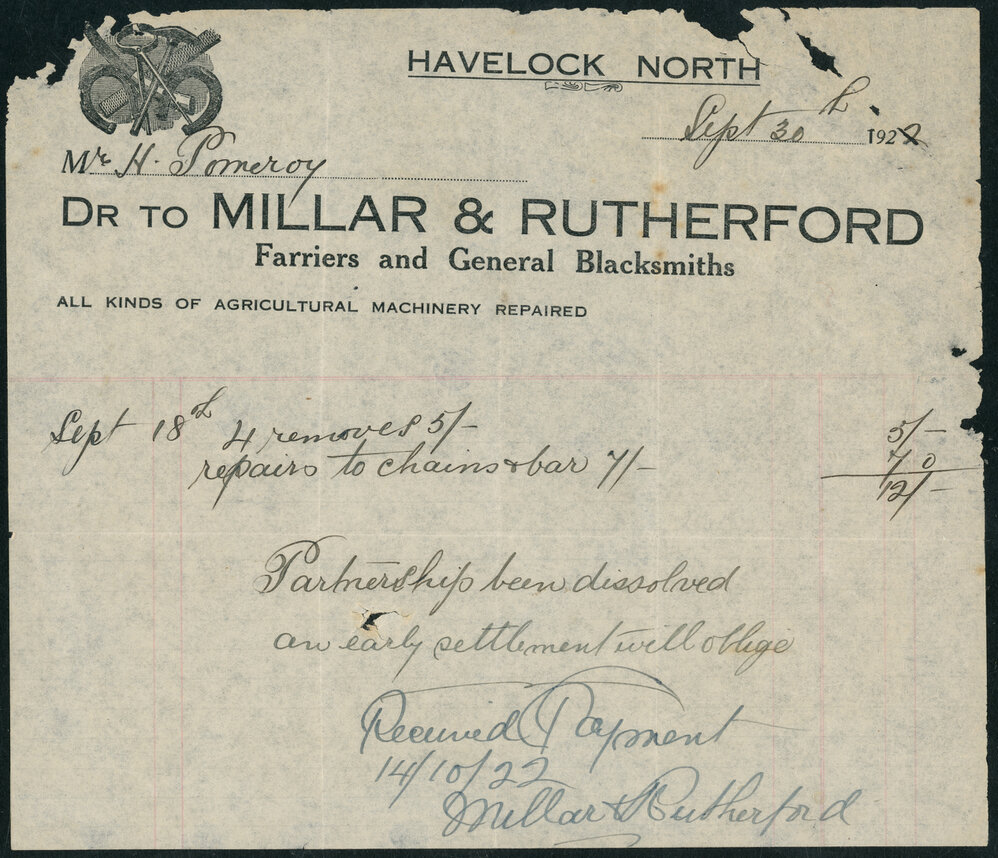 HAVELOCK NORTH
Sept 30th 1922
Mr H. Pomeroy
DR TO MILLAR & RUTHERFORD
Farriers and General Blacksmiths
ALL KINDS OF AGRICULTURAL MACHINERY REPAIRED
Sept 18th 4 removes 5/- 5/-
repairs to chains & bar 7/- 7 0
12/-
Partnership been dissolved
an early settlement will oblige
Received Payment
14/10/22
Millar & Rutherford